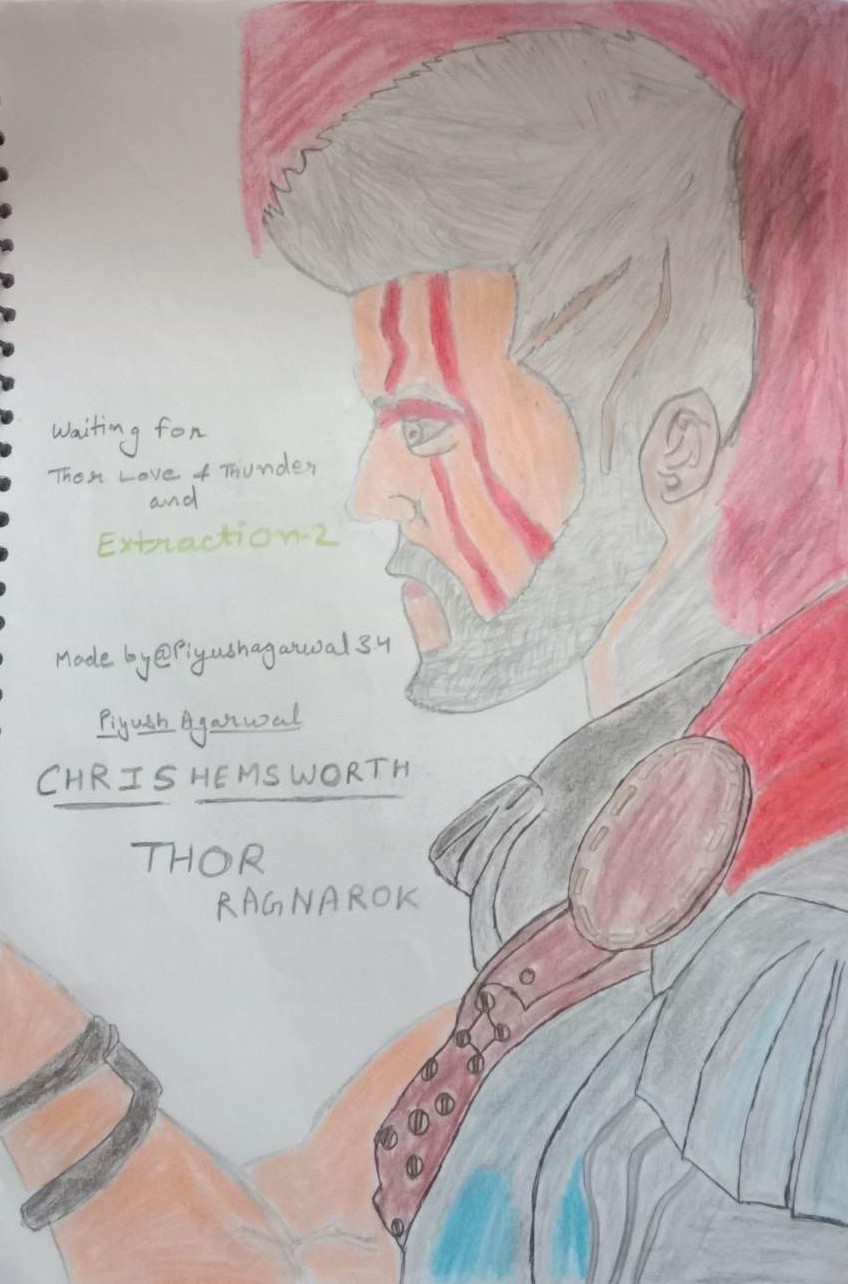 Waiting for
Thor Love & Thunder
and
Extraction-2
Made by@Piyushagarwal34
Piyush Agarwal
CHRIS HEMSWORTH
THOR
RAGNAROK